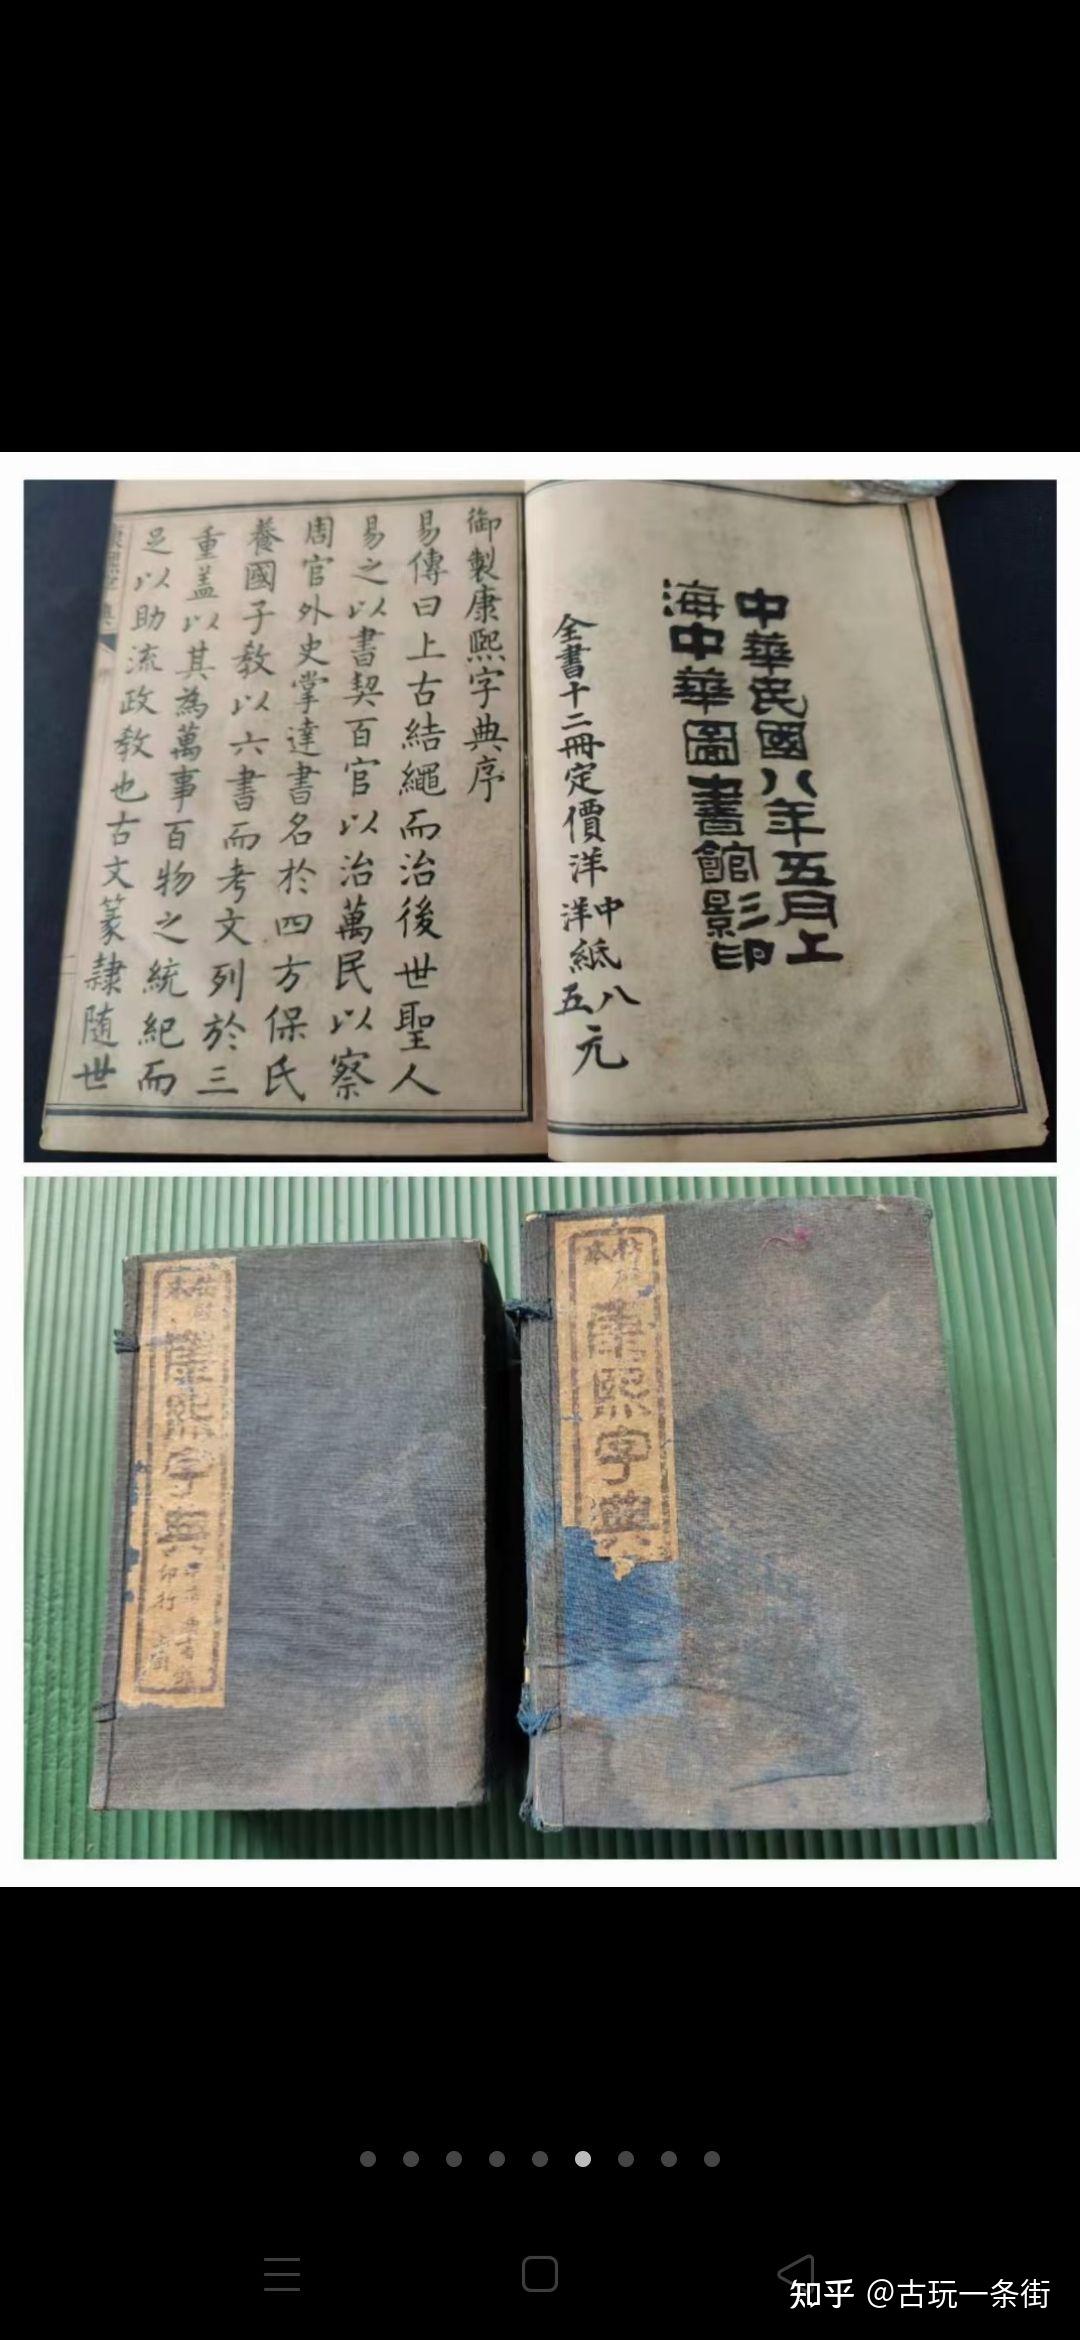 中華民國八年五月上
海中華圖書館影印
全書十二冊定價洋中紙八元
洋紙五元
御製康熙字典序
易傳曰上古結繩而治後世聖人
易之以書契百官以治萬民以察
周官外史掌達書名於四方保氏
養國子教以六書而考文列於三
重蓋以其為萬事百物之統紀而
足以助流政教也古文篆隷随世
康熙字典
康熙字典
印行
康熙字典
知乎 @古玩一条街